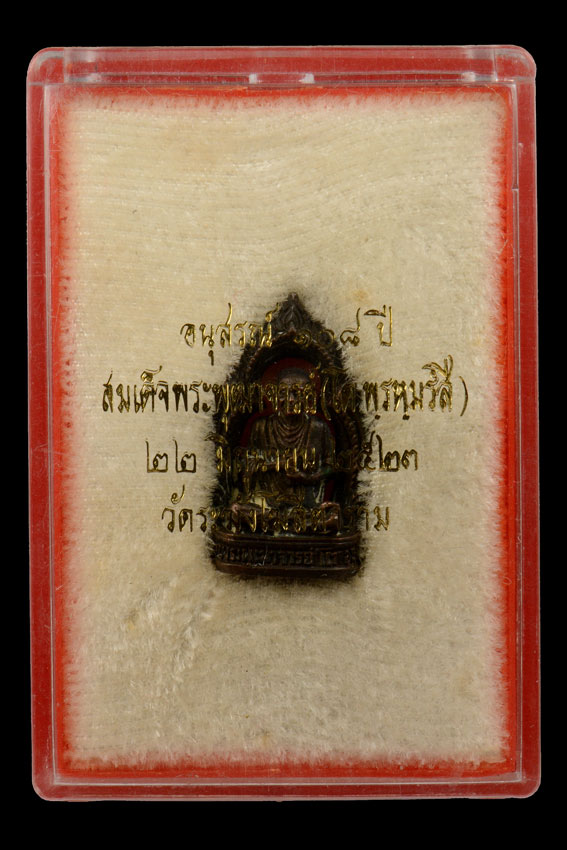 อนุสรณ์ ๑๐๘ ปี
สมเด็จพระพุฒาจารย์(โต พฺรหฺมรํสี)
๒๒ มิถุนายน ๒๕๒๓
วัดระฆังโฆสิตาราม